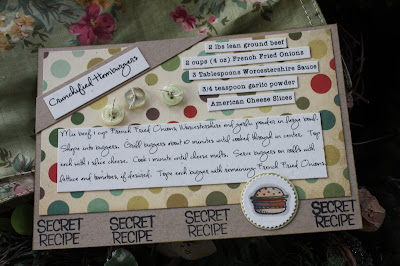 Crunchified Hamburgers
2 lbs lean ground beef
2 cups (4 oz) French Fried Onions
3 Tablespoons Worcestershire Sauce
3/4 teaspoon garlic powder
American Cheese Slices
Mix beef, 1 cup French Fried Onions, Worcestershire and garlic powder in large bowl.
Shape into burgers. Grill burgers about 10 minutes until cooked through in center. Top
each with 1 slice cheese. Cook 1 minute until cheese melts. Serve burgers on rolls with
lettuce and tomatoes, if desired. Top each burger with remaining French Fried Onions.
SECRET RECIPE
SECRET RECIPE
SECRET RECIPE
SECRET RECIPE